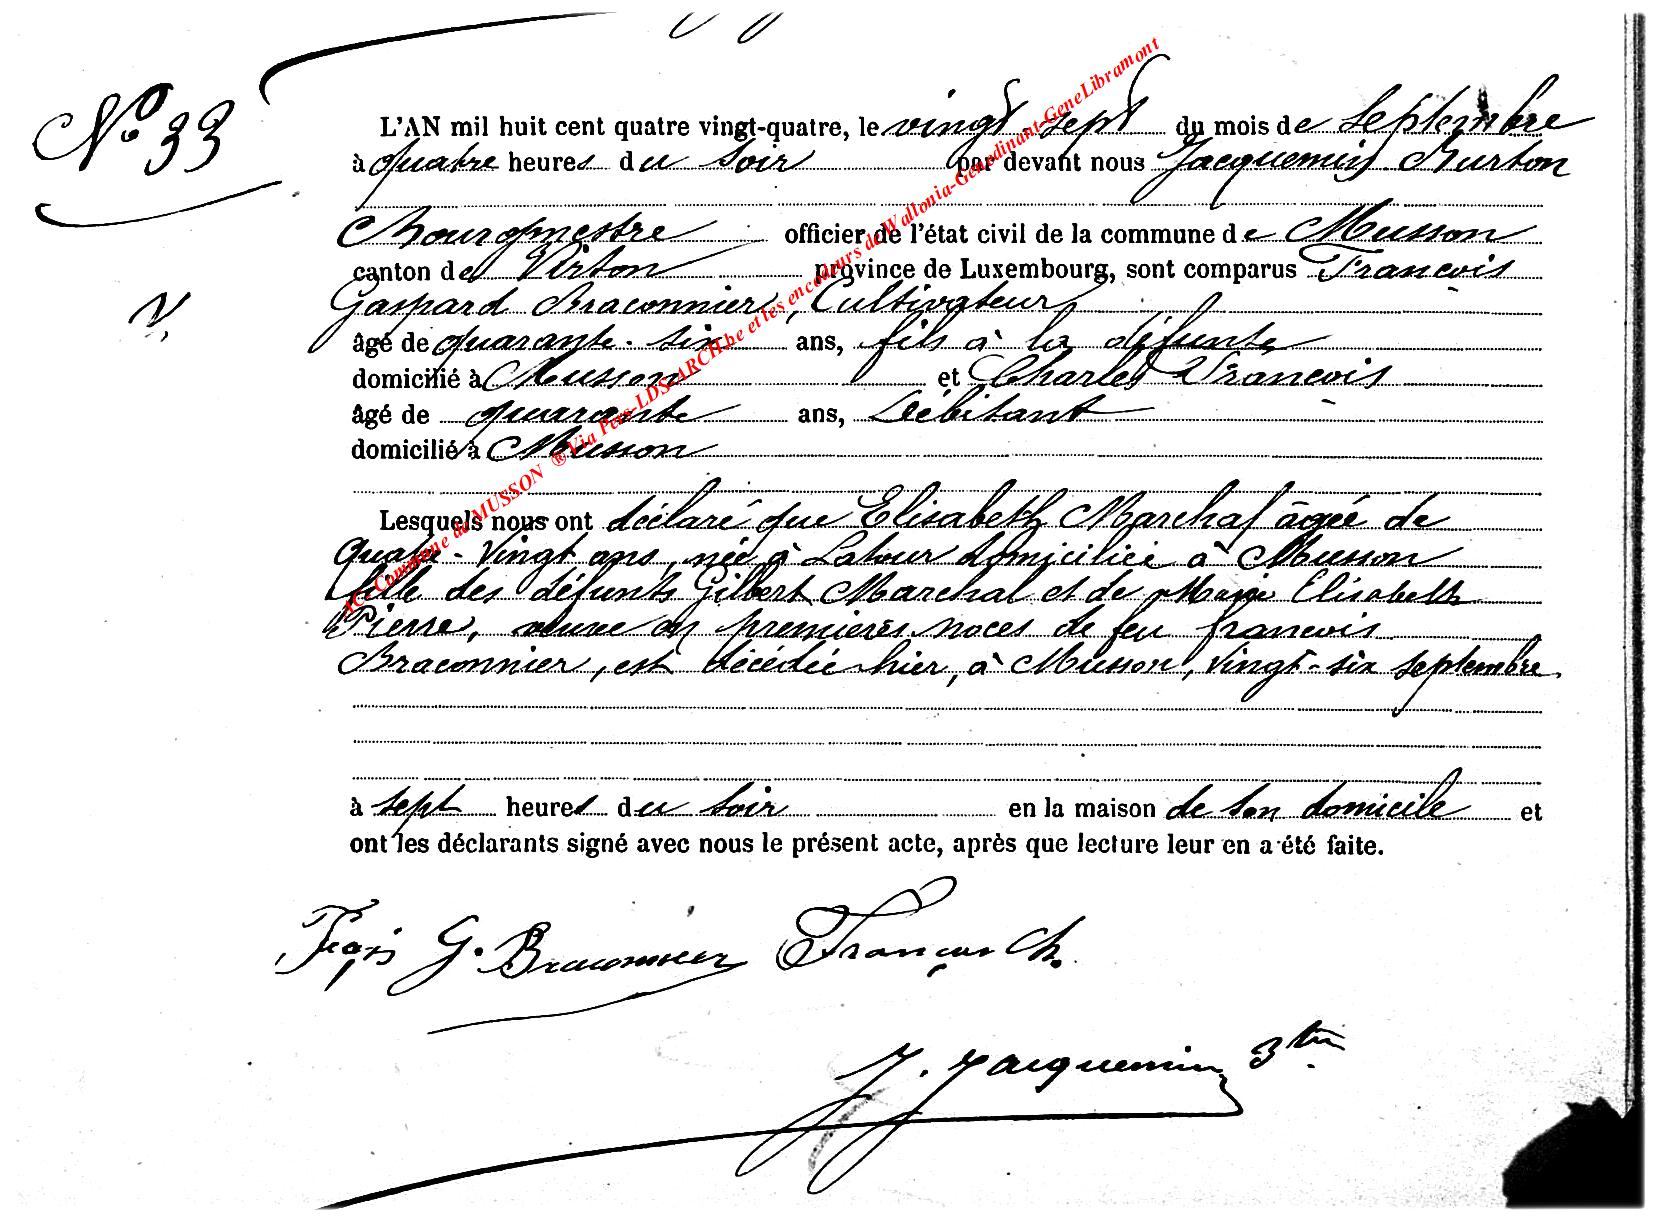 N° 33
L'AN mil huit cent quatre vingt-quatre, le vingt sept du mois de Septembre
à quatre heures du soir par devant nous Jacquemin Burton
Bourgmestre officier de l'état civil de la commune de Musson
canton de Virton province de Luxembourg, sont comparus François
Gaspard Braconnier, Cultivateur
âgé de quarante-six ans, fils à la défunte
domicilié à Musson et Charles François
âgé de quarante ans, Débitant
domicilié à Musson
Lesquels nous ont déclaré que Elisabeth Marchal âgée de
Quatre-Vingt ans, née à Latour domiciliée à Musson
fille des défunts Gilbert Marchal et de Marie Elisabeth
Pierre, veuve en premières noces de feu françois
Braconnier, est décédée hier, à Musson, vingt-six septembre
à sept heures du soir en la maison de son domicile et
ont les déclarants signé avec nous le présent acte, après que lecture leur en a été faite.
Fçois G. Braconnier François Ch.
J. Jacquemin Btn
AC: Commune de MUSSON ® Via Pers-LDS-ARCH.be et les encodeurs de Wallonia-Genedinant-GeneLibramont